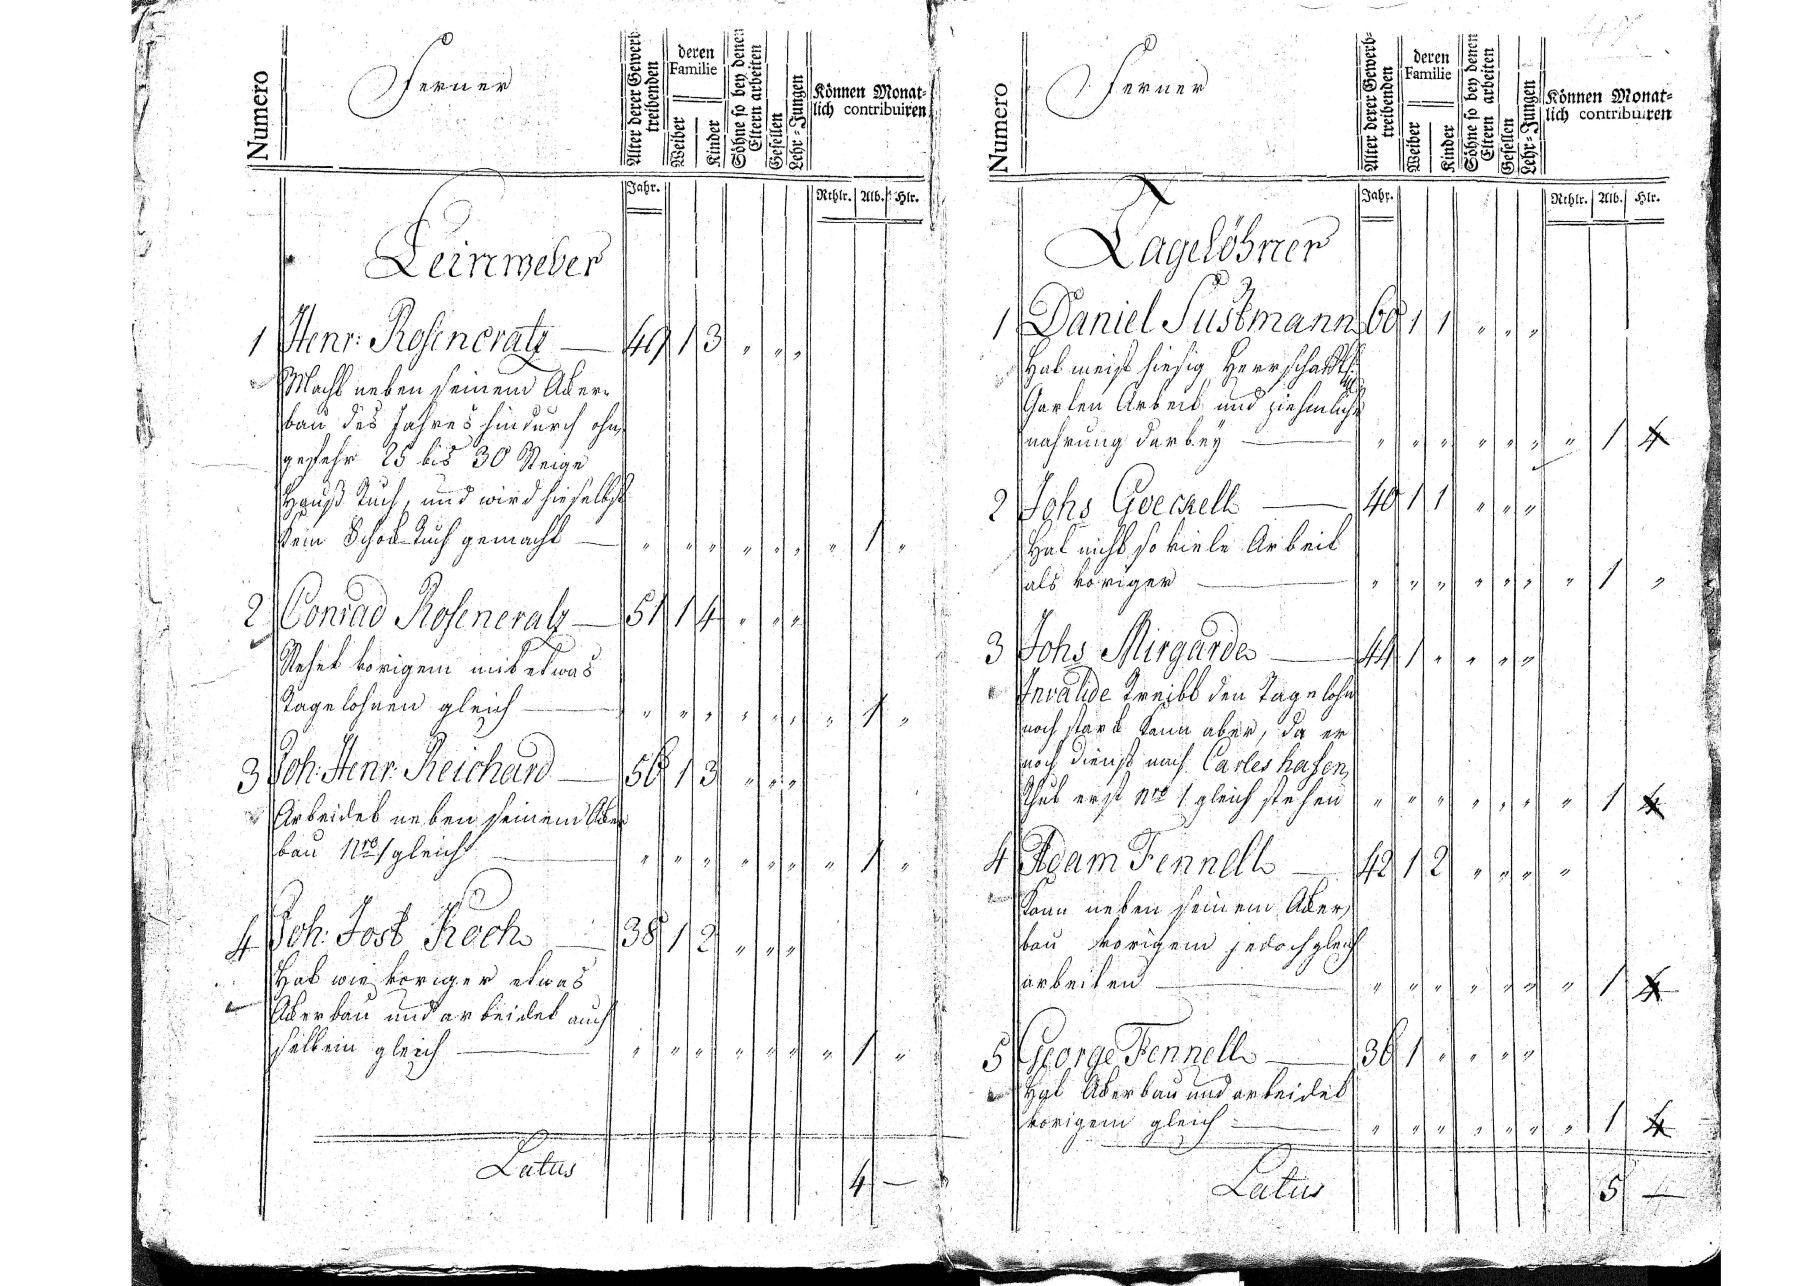 Numero
Ferner
Alter derer Gewerb-
treibenden
deren
Familie
Weiber
Kinder
Söhne so bey denen
Eltern arbeiten
Gesellen
Lehr-Jungen
Können Monat-
lich contribuiren
Jahr.
Rthlr. Alb. Hlr.
Leinweber
1 Henr: Rosencratz — 49 1 3 " " "
Macht neben seinem Aker-
bau des Jahres hindurch ohn
gefehr 25 bis 30 Steige
Hauß Tuch, und wird hieselbst
kein Schok Tuch gemacht — " " " " " " " 1 "
2 Conrad Rosencratz — 51 1 4 " " "
Stehet vorigem mit etwas
Tagelohnen gleich — " " " " " " " 1 "
3 Joh: Henr: Reichard — 56 1 3 " " "
Arbeidet neben seinem Aker
bau Nro 1 gleich — " " " " " " " 1 "
4 Joh: Jost Koch — 38 1 2 " " "
Hat wie voriger etwas
Akerbau und arbeidet auch
selbem gleich — " " " " " " " 1 "
Latus 4 —
Numero
Ferner
Alter derer Gewerb-
treibenden
deren
Familie
Weiber
Kinder
Söhne so bey denen
Eltern arbeiten
Gesellen
Lehr-Jungen
Können Monat-
lich contribuiren
Jahr.
Rthlr. Alb. Hlr.
Tagelöhner
1 Daniel Sustmann 60 1 1 " " "
Hat meist hiesig Herrschaftl:
Garten Arbeit und ziehmliche
nahrung darbey — " " " " " " " 1 4
2 Johs Goeckell — 40 1 1 " " "
Hat nicht so viele Arbeit
als voriger — " " " " " " " 1 "
3 Johs Mirgarde — 44 1 " " " "
Invalide treibt den Tagelohn
noch stark kann aber, da er
noch dienst nach Carleshafen
thut erst Nro 1 gleich stehen " " " " " " " 1 4
4 Adam Fennell — 42 1 2 " " " "
Kann neben seinem Aker,
bau vorigem jedoch gleich
arbeiten — " " " " " " " 1 4
5 George Fennell — 36 1 " " " "
Hat Akerbau und arbeidet
vorigem gleich — " " " " " " " 1 4
Latus 5 —